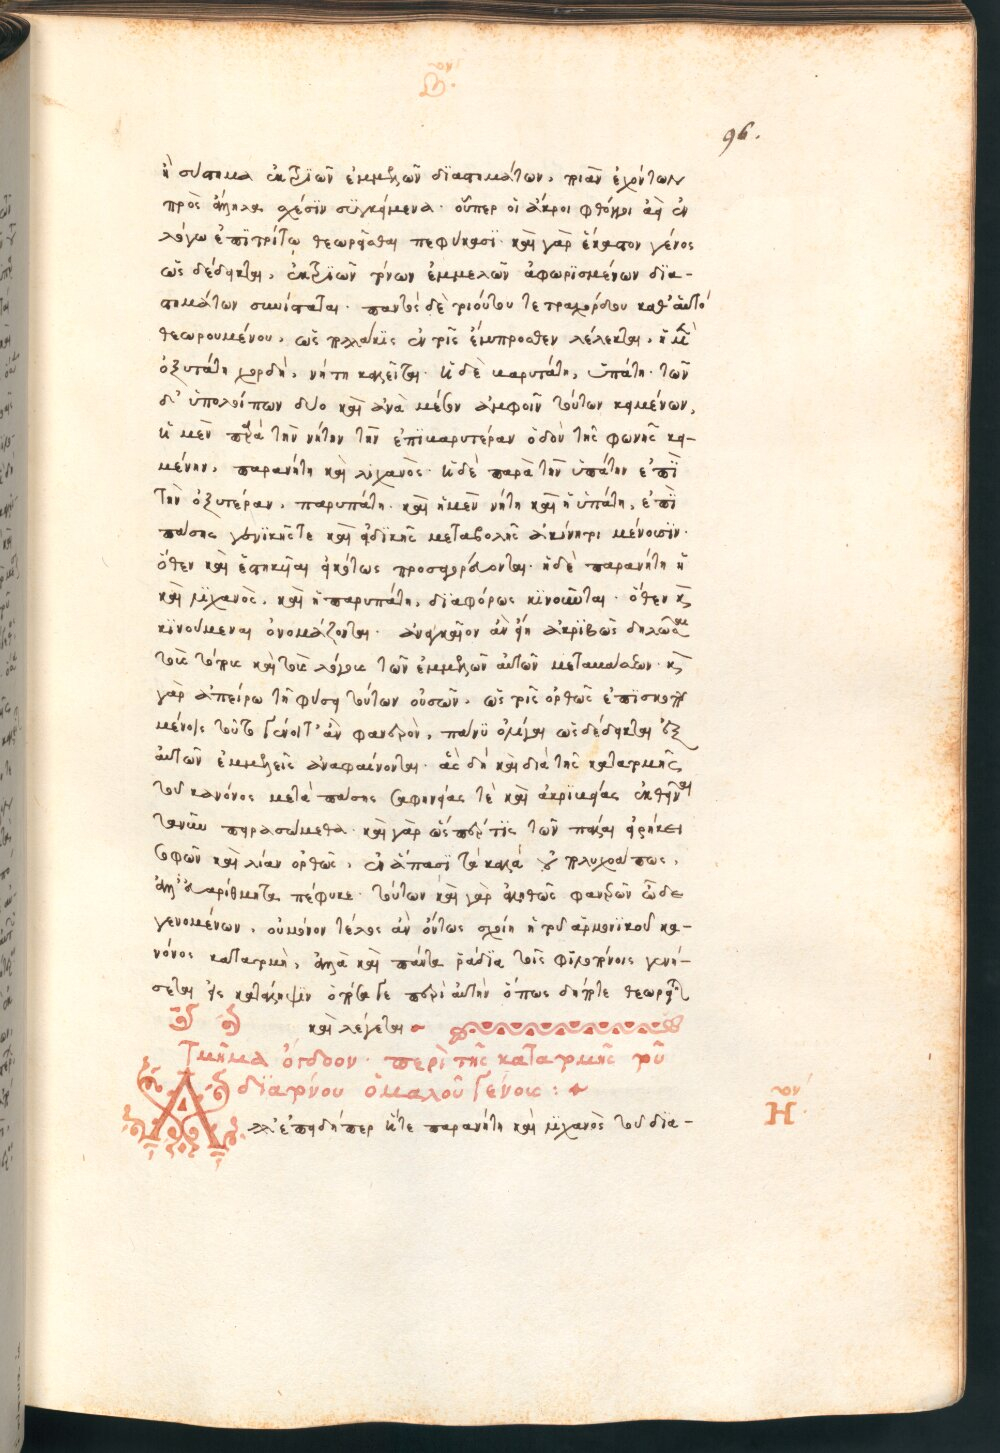 Βον.
96.
ἢ σύστημα ἐκ τριῶν ἐμμελῶν διαστημάτων, ποιὰν ἐχόντων
πρὸς ἄλληλα σχέσιν συγκείμενα. οὗπερ οἱ ἄκροι φθόγγοι ἀεὶ ἐν
λόγω ἐπιτρίτω θεωρεῖσθαι πεφύκασι. καὶ γὰρ ἕκαστον γένος
ὡς δέδεικται, ἐκ τριῶν τινων ἐμμελῶν ἀφωρισμένων δια-
στημάτων συνίσταται. παντὸς δὲ τοιούτου τετραχόρδου καθ' αὑτὸ
θεωρουμένου, ὡς πολλάκις ἐν τοῖς ἔμπροσθεν λέλεκται, ἡ μὲν
ὀξυτάτη χορδὴ, νήτη καλεῖται. ἡ δὲ βαρυτάτη, ὑπάτη. τῶν
δ' ὑπολοίπων δύο καὶ ἀνὰ μέσον ἀμφοῖν τούτων κειμένων,
ἡ μὲν παρὰ τὴν νήτην τὴν ἐπὶ βαρυτέραν ὁδὸν τῆς φωνῆς κει-
μένην, παρανήτη καὶ λιχανὸς. ἡ δὲ παρὰ τὴν ὑπάτην ἐπὶ
τὴν ὀξυτέραν, παρυπάτη. καὶ ἡ μὲν νήτη καὶ ἡ ὑπάτη, ἐπὶ
πάσης γενικῆς τε καὶ εἰδικῆς μεταβολῆς ἀκίνητοι μένουσιν.
ὅθεν καὶ ἑστηκυῖαι εἰκότως προσαγορεύονται. ἡ δὲ παρανήτη ἢ
καὶ λιχανὸς, καὶ ἡ παρυπάτη, διαφόρως κινοῦνται. ὅθεν καὶ
κινούμεναι ὀνομάζονται. ἀναγκαῖον ἂν εἴη ἀκριβῶς δηλῶσαι
τοὺς τόπους καὶ τοὺς λόγους τῶν ἐμμελῶν αὐτῶν μεταβάσεων. καὶ
γὰρ ἀπείρω τῆ φύσει τούτων οὐσῶν, ὡς τοῖς ὀρθῶς ἐπισκοπου
μένοις τοῦτο γένοιτ' ἂν φανερὸν, πάνυ ὀλίγαι ὡς δέδεικται ἐξ
αὐτῶν ἐμμελεῖς ἀναφαίνονται. ἃς δὴ καὶ διὰ τῆς κατατομῆς
τοῦ κανόνος μετὰ πάσης σαφηνείας τὲ καὶ ἀκριβείας ἐκθεῖναι
τανῦν πειρασώμεθα. καὶ γὰρ ὥσπερ τίς τῶν πάλαι εἴρηκε
σοφῶν καὶ λίαν ὀρθῶς, ἐν ἅπασι τὰ καλὰ οὐ πλυχοά πως,
ἀλλ' εὐαρίθμητα πέφυκε. τούτων καὶ γὰρ ἀληθῶς φανερῶν ὧδε
γενομένων, οὐ μόνον τέλος ἂν οὕτως σχοίη ἡ τοῦ ἁρμονικοῦ κα-
νόνος κατατομὴ, ἀλλὰ καὶ πάντα ῥάδια τοῖς φιλοπόνοις γενή-
σεται εἰς κατάληψιν ὁπόσα γε περὶ αὐτὴν ὅπως δήποτε θεωρεῖται
καὶ λέγεται
Τμῆμα ὄγδοον. περὶ τῆς κατατομῆς τοῦ
διατόνου ὁμαλοῦ γένους:
Ηον.
Ἀλλ' ἐπειδήπερ ἥτε παρανήτη καὶ λιχανὸς τοῦ δια-